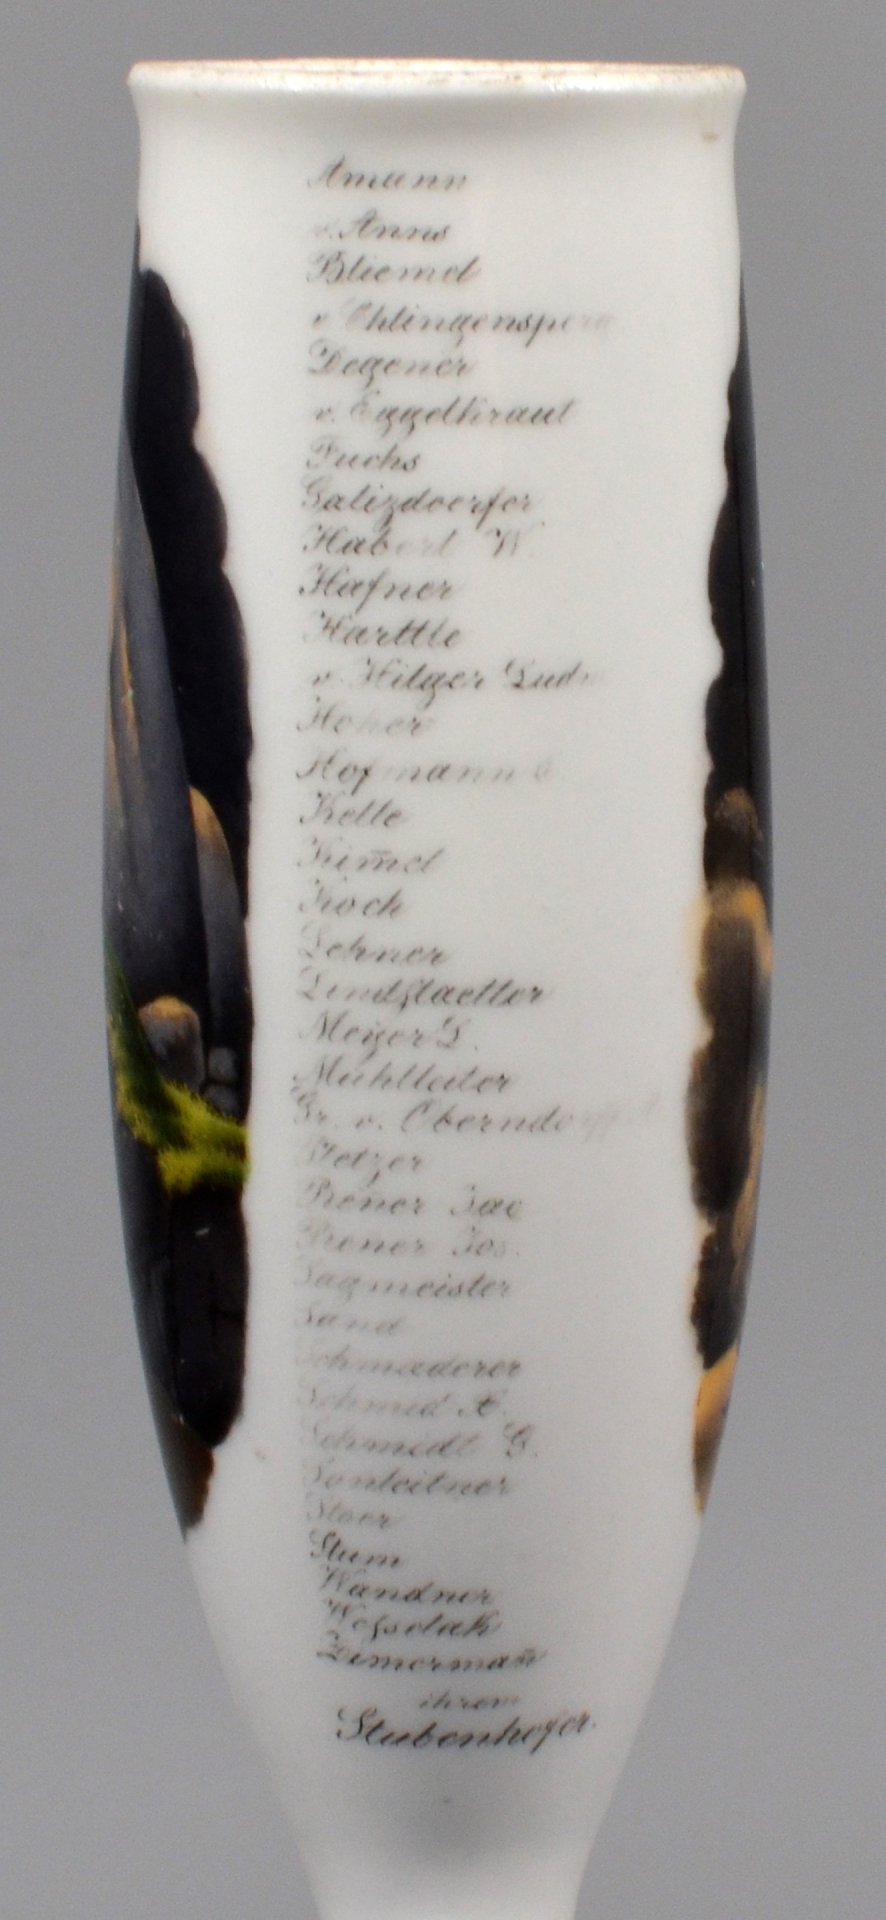 Amann
v. Anns
Bliemel
v Ehlingensperg
Degener
v. Eggelkraut
Fuchs
Galizdoerfer
Haberl W.
Hafner
Harttle
v. Hilger Ludw
Hofmann
Kelle
Kim̄el
Koch
Lehner
Lindstaetter
Meyer L.
Mühlleiter
Gr. v. Oberndorff
Petzer
Prener Jac
Prener Jos.
Sagmeister
Sand
Schmaderer
Schmid X.
Schmidt G.
Sonleitner
Stoer
Stum
Wandner
Zimerman̄
ihrem
Stubenhofer.